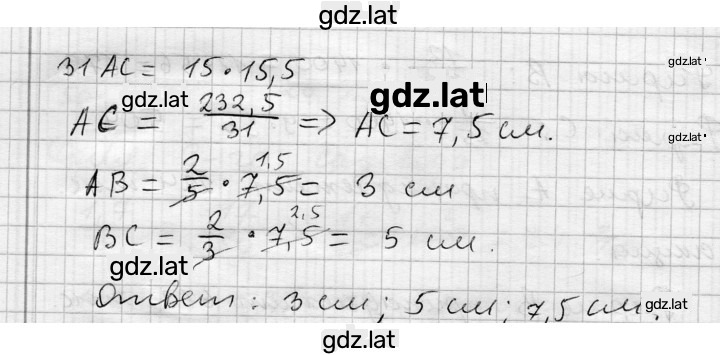 gdz.lat
31 AC = 15 • 15,5
gdz.lat
AC = 232,5/31 => AC = 7,5 см.
gdz.lat
gdz.lat
gdz.lat
AB = 2/5 • 7,5 = 3 см
1,5
BC = 2/3 • 7,5 = 5 см.
2,5
gdz.lat
Ответ: 3 см; 5 см; 7,5 см.
gdz.lat
gdz.lat